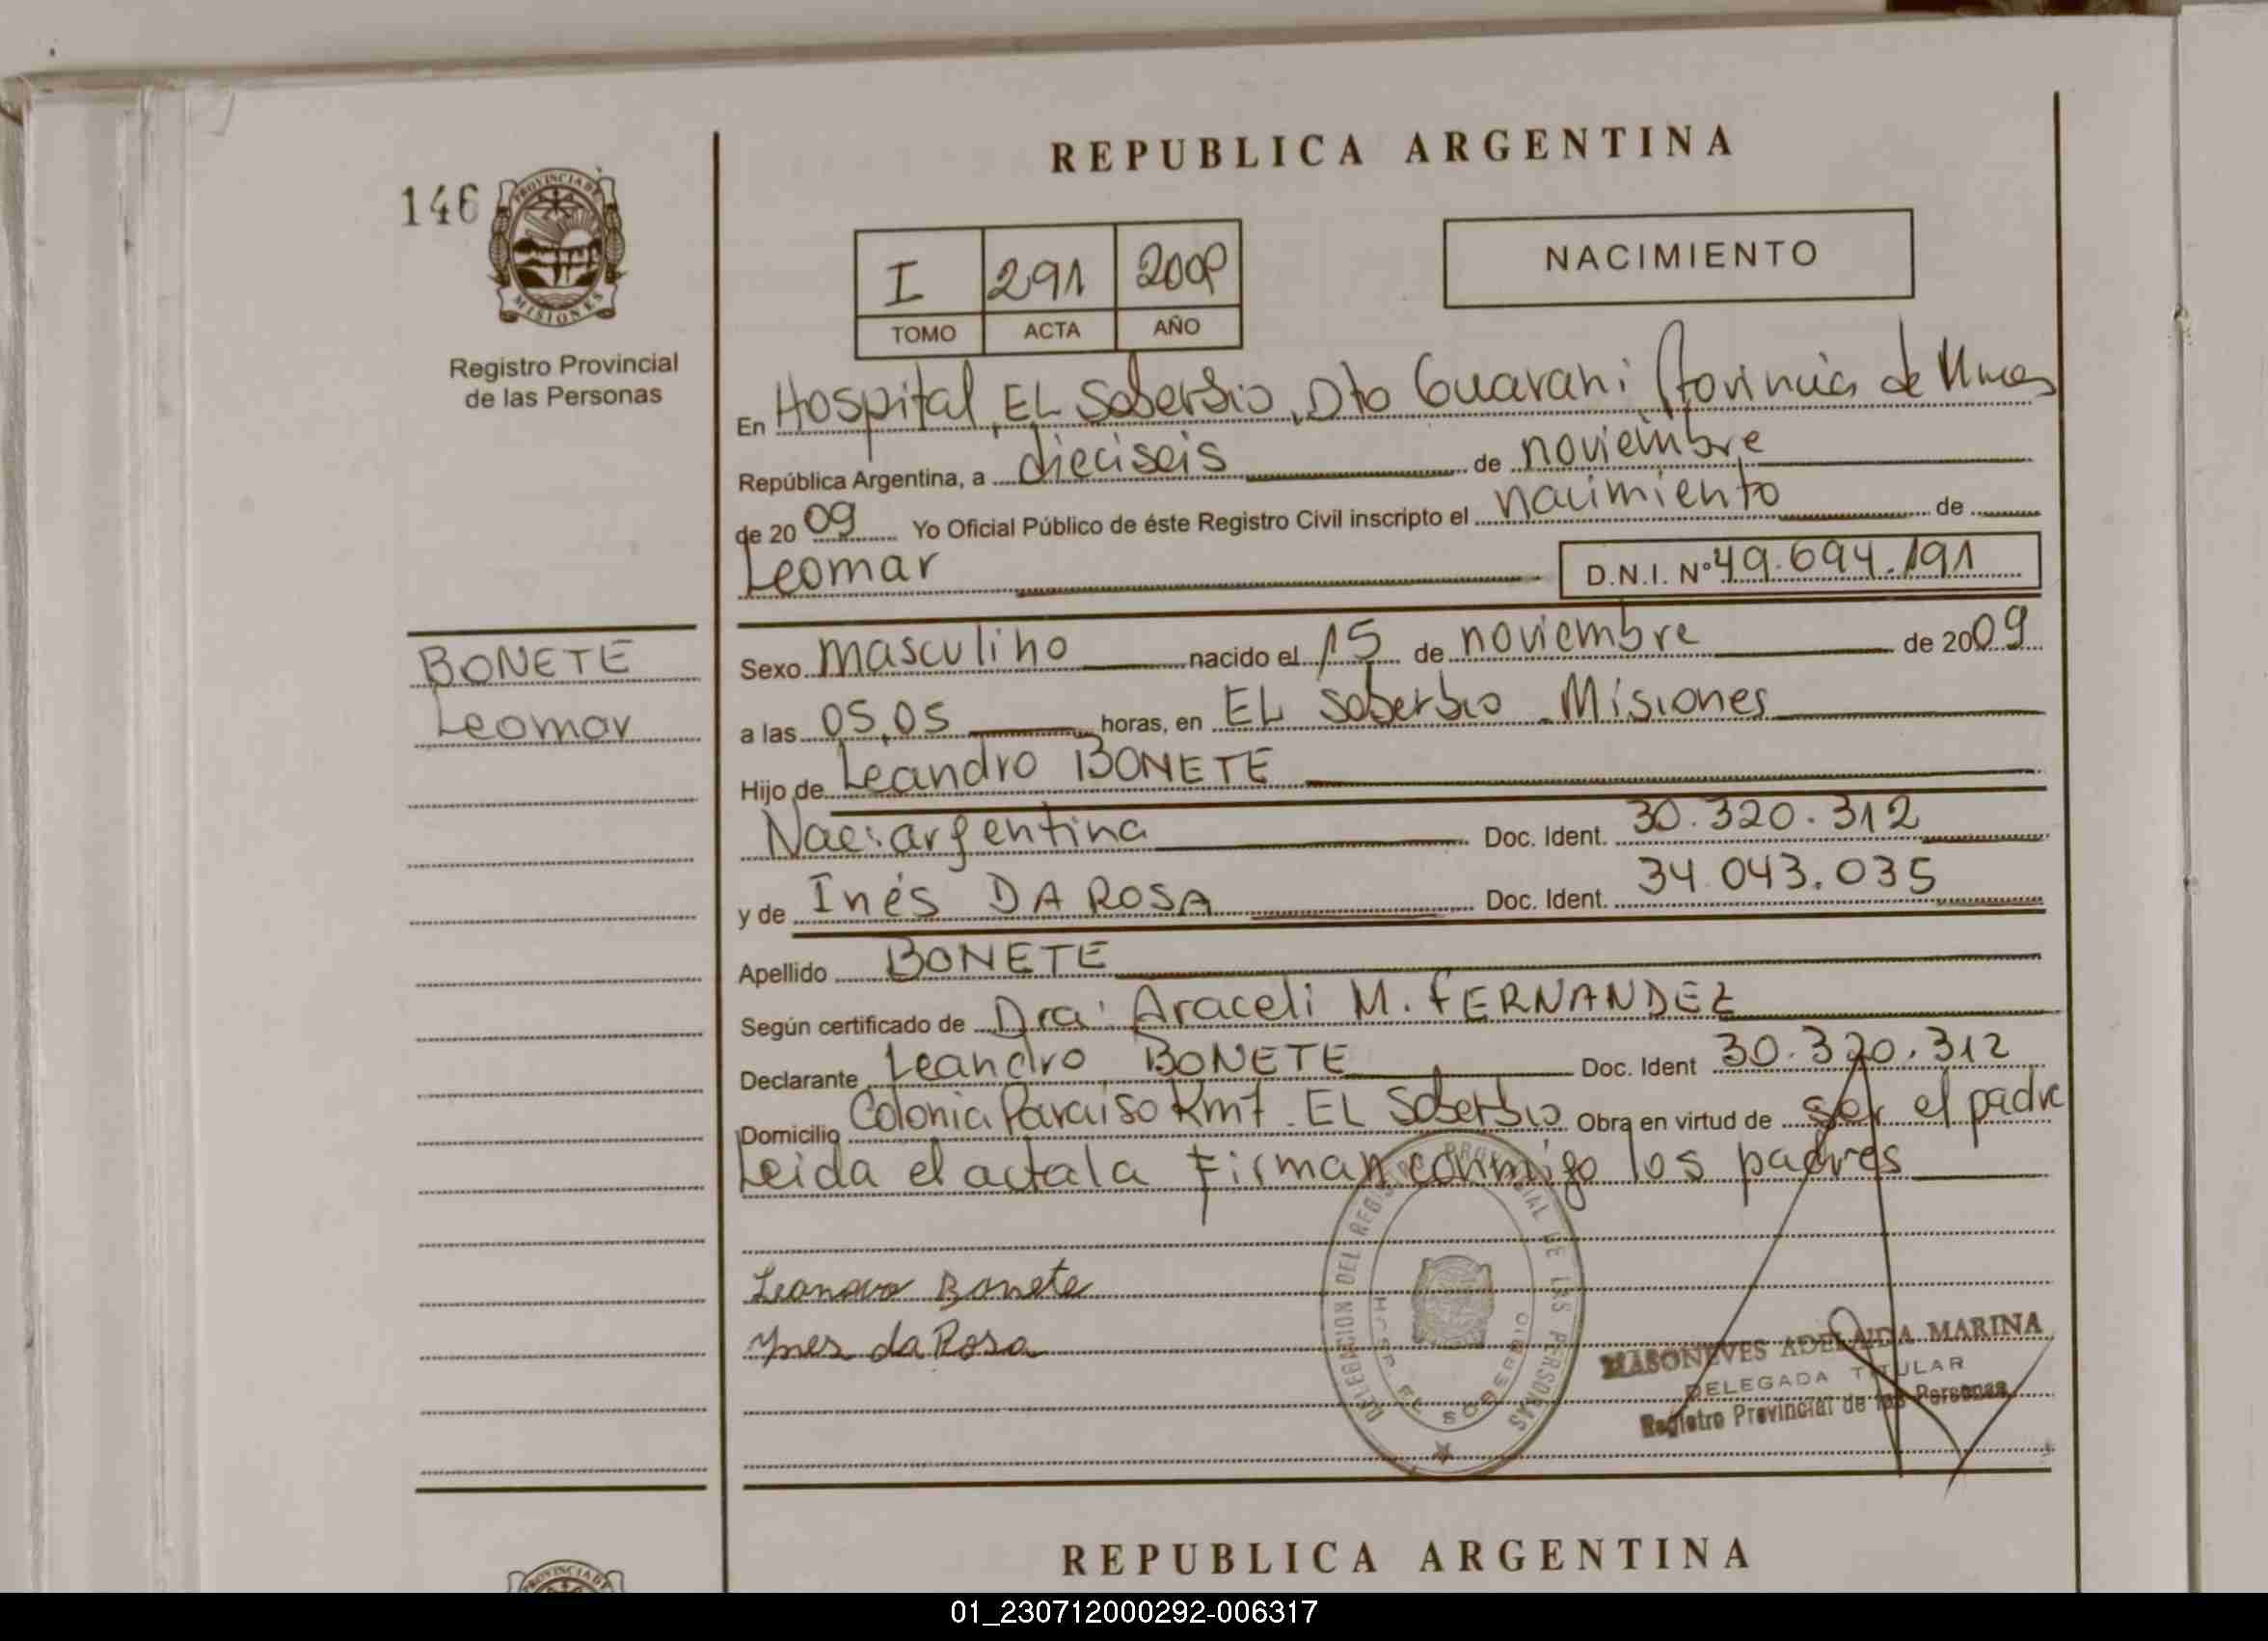 REPUBLICA ARGENTINA
146
PROVINCIA DE
MISIONES
Registro Provincial
de las Personas
I 291 2009
TOMO ACTA AÑO
NACIMIENTO
En Hospital, EL Soberbio, Dto Guarani Provincia de Mnes
República Argentina, a dieciseis de noviembre
de 2009 Yo Oficial Público de éste Registro Civil inscripto el nacimiento de
Leomar D.N.I. Nº 49.694.191
BONETE
Leomar
Sexo masculino nacido el 15 de noviembre de 2009
a las 05,05 horas, en EL Soberbio Misiones
Hijo de Leandro BONETE
Nac: argentina Doc. Ident. 30.320.312
y de Inés DA ROSA Doc. Ident. 34.043.035
Apellido BONETE
Según certificado de Dra: Araceli M. FERNANDEZ
Declarante Leandro BONETE Doc. Ident 30.320.312
Domicilio Colonia Paraiso Km7 EL Soberbio Obra en virtud de ser el padre
Leida el acta la Firman conmigo los padres
DELEGACION DEL REGISTRO PROVINCIAL DE LAS PERSONAS
HOSP. EL SOBERBIO
Leandro Bonete
Ynes da Rosa
MASONEVES ADELAIDA MARINA
DELEGADA TITULAR
Registro Provincial de las Personas
REPUBLICA ARGENTINA
PROVINCIA DE
01_230712000292-006317